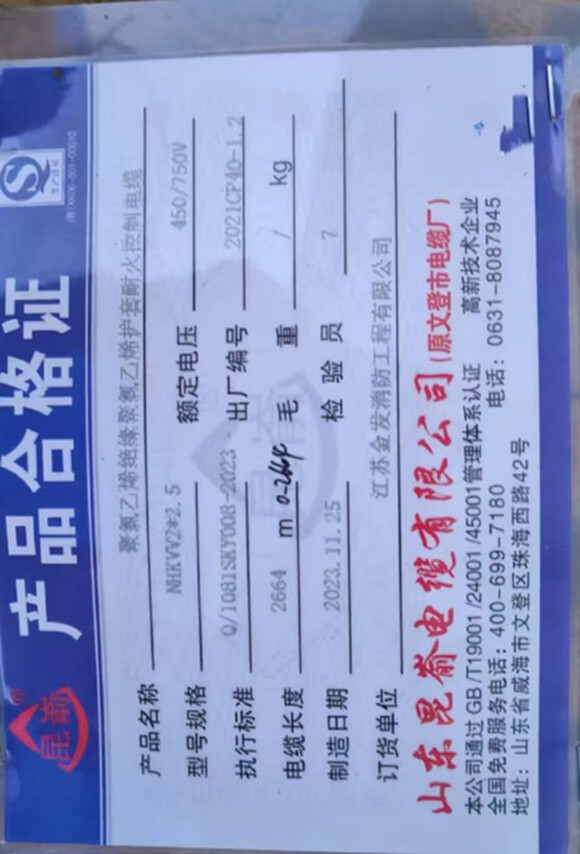 昆嵛®
产品合格证
生产许可
产品名称 聚氯乙烯绝缘聚氯乙烯护套耐火控制电缆
型号规格 NHKVV2*2.5 额定电压 450/750V
执行标准 Q/1081SKY008-2023 出厂编号 2021CP40-1.2
电缆长度 2664 m 0-2664 毛重 / kg
制造日期 2023.11.25 检验员 7
订货单位 江苏金发消防工程有限公司
山东昆嵛电缆有限公司(原文登市电缆厂)
本公司通过GB/T19001/24001/45001管理体系认证 高新技术企业
全国免费服务电话：400-699-7180 电话：0631-8087945
地址：山东省威海市文登区珠海西路42号